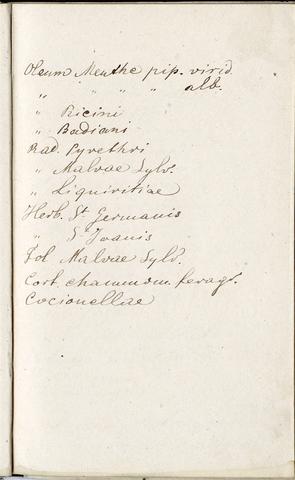 Oleum Menthe pip. virid.
" " " " alb.
" Ricini
" Badiani
Rad. Pyrethri
" Malvae Sylv.
" Liquiritiae
Herb. St Germanis
" St Joanis
Fol Malvae Sylv.
Cort. chammom.
Cocionellae